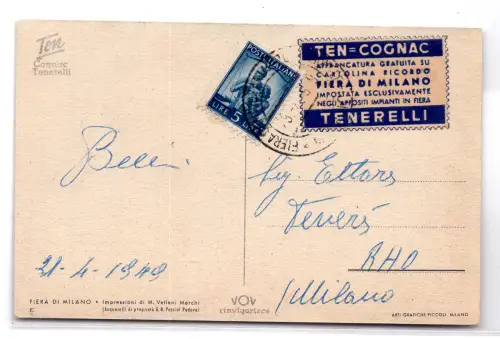 Ten
Cognac
Tenerelli
POSTE ITALIANE
LIRE 5
FIERA
TEN=COGNAC
AFFRANCATURA GRATUITA SU
CARTOLINA RICORDO
FIERA DI MILANO
IMPOSTATA ESCLUSIVAMENTE
NEGLI APPOSITI IMPIANTI IN FIERA
TENERELLI
Sig. Ettore
RHO
(Milano
21-4-1949
FIERA DI MILANO • Impressioni di M. Vellani Marchi
VOV
rinvigorisce
ARTI GRAFICHE PICCOLI, MILANO